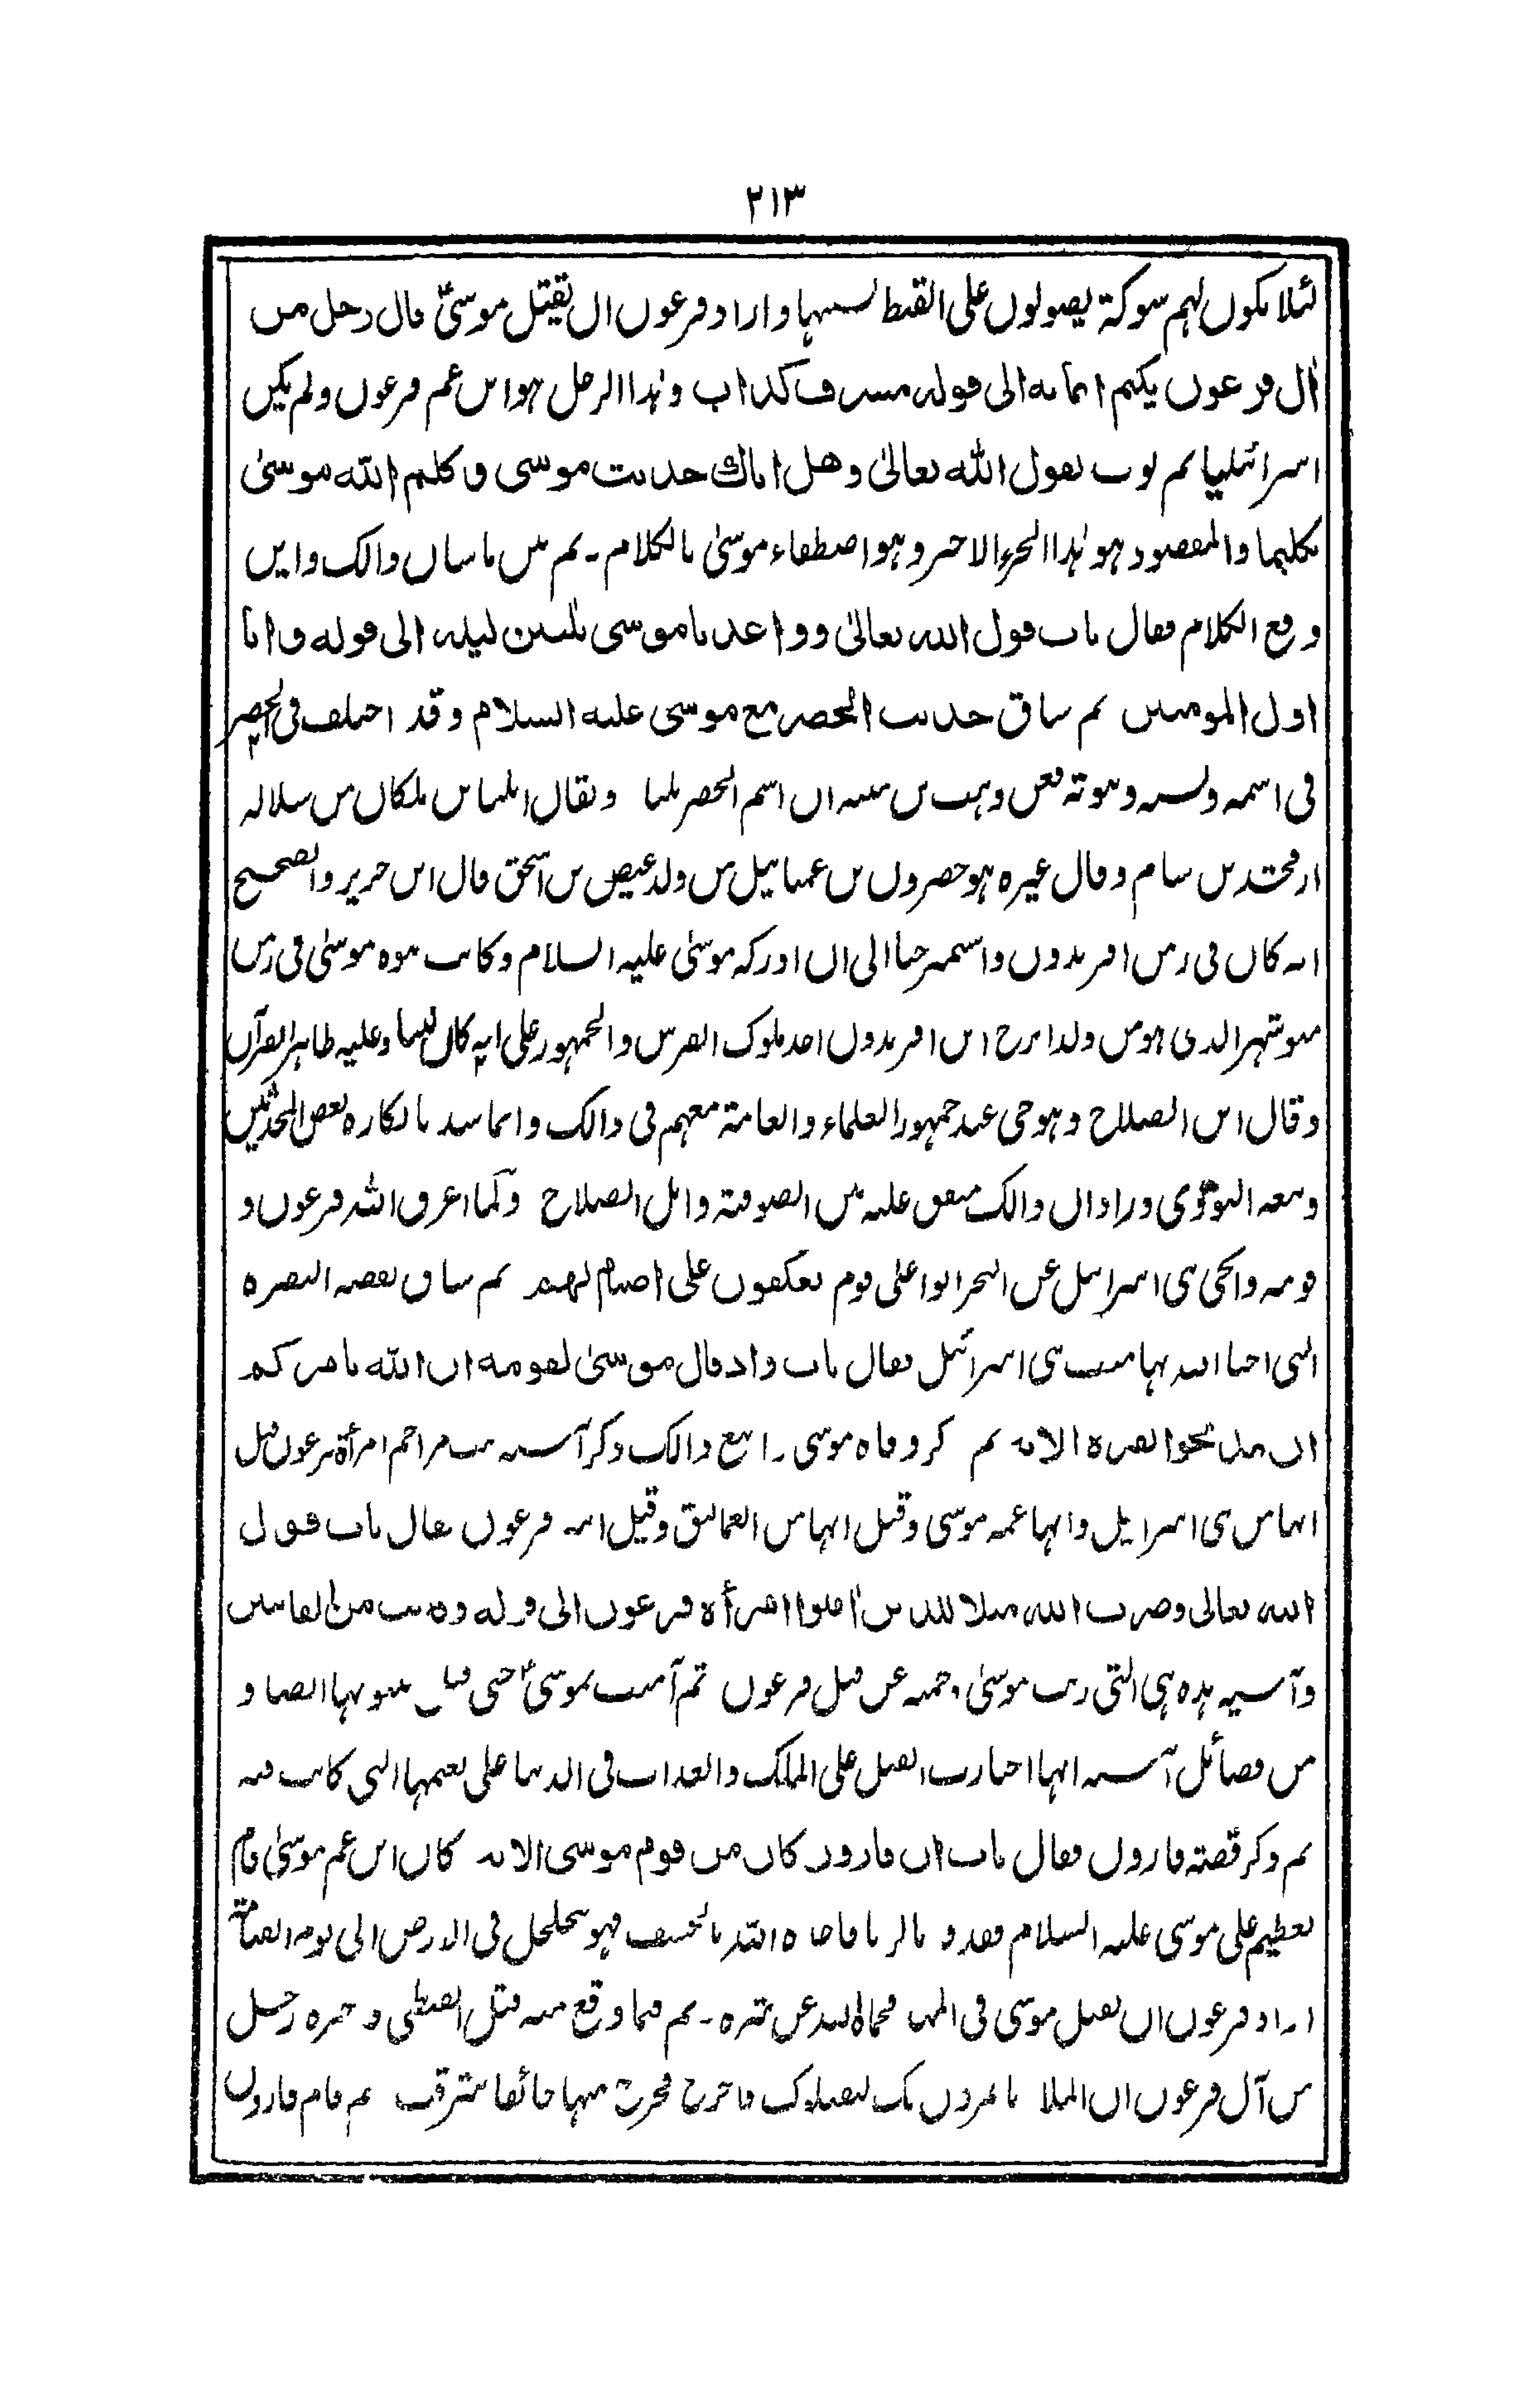 ٢١٣
لئلا يكون لهم شوكة يصولون على القبط بسببها واراد فرعون ان يقتل موسىٰ قال رجل من
اٰل فرعون يكتم ايمانه الى قوله مسرف كذاب وهذا الرجل هو ابن عم فرعون ولم يكن
اسرائيليا ثم بوب بقول الله تعالىٰ وهل اتاك حديث موسى وكلم الله موسىٰ
تكليما والمقصود هو هذا الجزء الاخير وهو اصطفاء موسىٰ بالكلام۔ ثم بين ما شان ذالك واين
وقع الكلام فقال باب قول الله تعالىٰ وواعدنا موسى ثلثين ليلة الى قوله وانا
اول المومنين ثم ساق حديث الخضر مع موسى عليه السلام وقد اختلف فى الخضر
فى اسمه ونسبه ونبوته فعن وهب بن منبه ان اسم الخضر بليا ويقال ايليا بن ملكان من سلالة
ارفخشد بن سام وقال غيره هو خضرون بن عمياييل من ولد عيص بن اسحق قال ابن جرير والصحيح
انه كان فى زمن افريدون واستمر حيا الى ان ادركه موسىٰ عليه السلام وكانت نبوة موسىٰ فى زمن
منوشهر الذى هو من ولد ايرج ابن افريدون احد ملوك الفرس والجمهور على انه كان نبيا وعليه ظاهر القرآن
وقال ابن الصلاح وهو حى عند جمهور العلماء والعامة معهم فى ذالك وانما شذ بانكاره بعض المحدثين
وتبعه النووى وزاد ان ذالك متفق عليه بين الصوفية واهل الصلاح ولما اغرق الله فرعون و
قومه وانجى بنى اسرائيل عن البحر اتوا على قوم يعكفون على اصنام لهم ثم ساق بقصة البقرة
التى احيا الله بها ميت بنى اسرائيل فقال باب واذ قال موسىٰ لقومه ان الله يامركم
ان تذبحوا بقرة الاية ثم ذكر وفاة موسى ذالك وذكر آسية بنت مزاحم امرأة فرعون قيل
انها من بنى اسرائيل وانها عمة موسى وقيل انها من العماليق وقيل ابنة فرعون فقال باب قول
الله تعالى وضرب الله مثلا للذين اٰمنوا امرأة فرعون الى قوله وكانت من القانتين
وآسية هذه هى التى ربت موسىٰ عن قتل فرعون ثم آمنت بموسىٰ حتى قيل بنبوتها ايضا و
من فضائل آسية انها اختارت القتل على الملك والعذاب فى الدنيا على نعيمها التى كانت فيه
ثم ذكر قصة قارون فقال باب ان قارون كان من قوم موسى الاية كان ابن عم موسىٰ قام
بعظيم على موسى عليه السلام بالزنا الله بالخسف فهو يتجلجل فى الارض الى يوم القيامة
اراد فرعون ان يقتل موسى فى المهد فحماه الله عن شره۔ ثم فيما وقع منه قتل القبطى رجل
من آل فرعون ان الملا ياتمرون بك ليقتلوك فاخرج فخرج منها خائفا يترقب ثم قام قارون